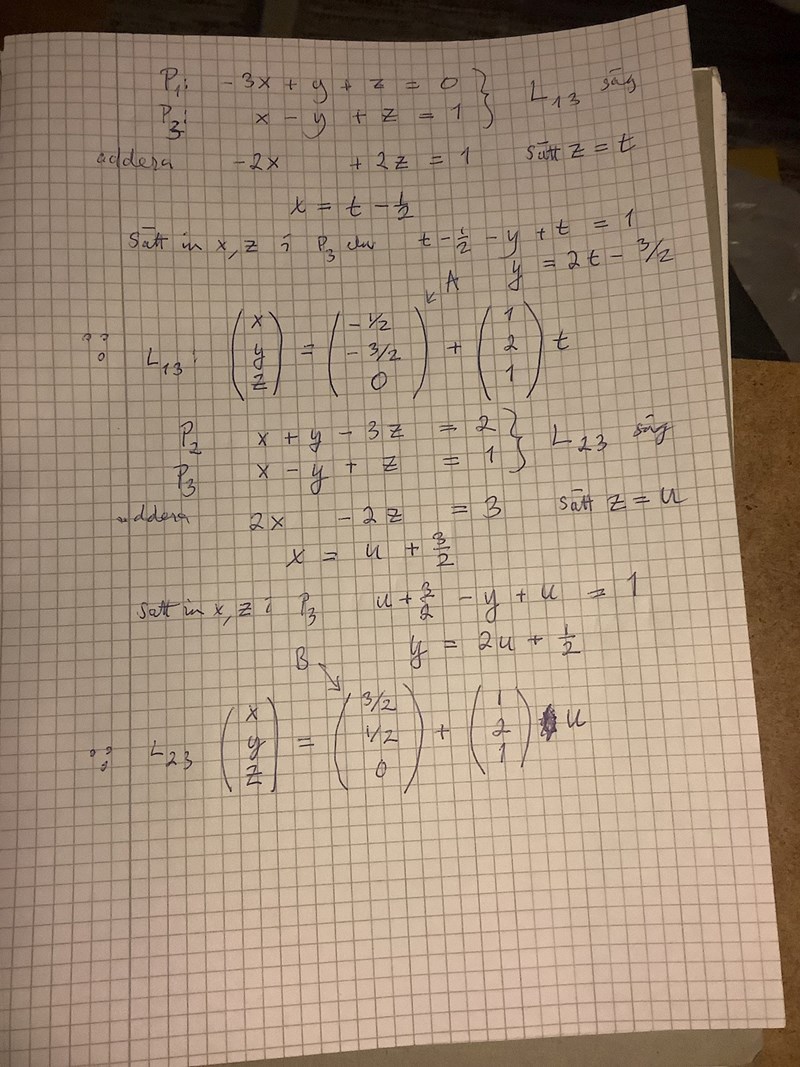 P₁: -3x + y + z = 0 } L₁₃ säg
P₃: x - y + z = 1
addera -2x + 2z = 1 Sätt z = t
x = t - 1/2
Sätt in x, z i P₃ t - 1/2 - y + t = 1
y = 2t - 3/2
A
∴ L₁₃: (x y z) = (-1/2 -3/2 0) + (1 2 1) t
P₂ x + y - 3z = 2 } L₂₃ säg
P₃ x - y + z = 1
addera 2x - 2z = 3 Sätt z = u
x = u + 3/2
Sätt in x, z i P₃ u + 3/2 - y + u = 1
y = 2u + 1/2
B
∴ L₂₃ (x y z) = (3/2 1/2 0) + (1 2 1) u